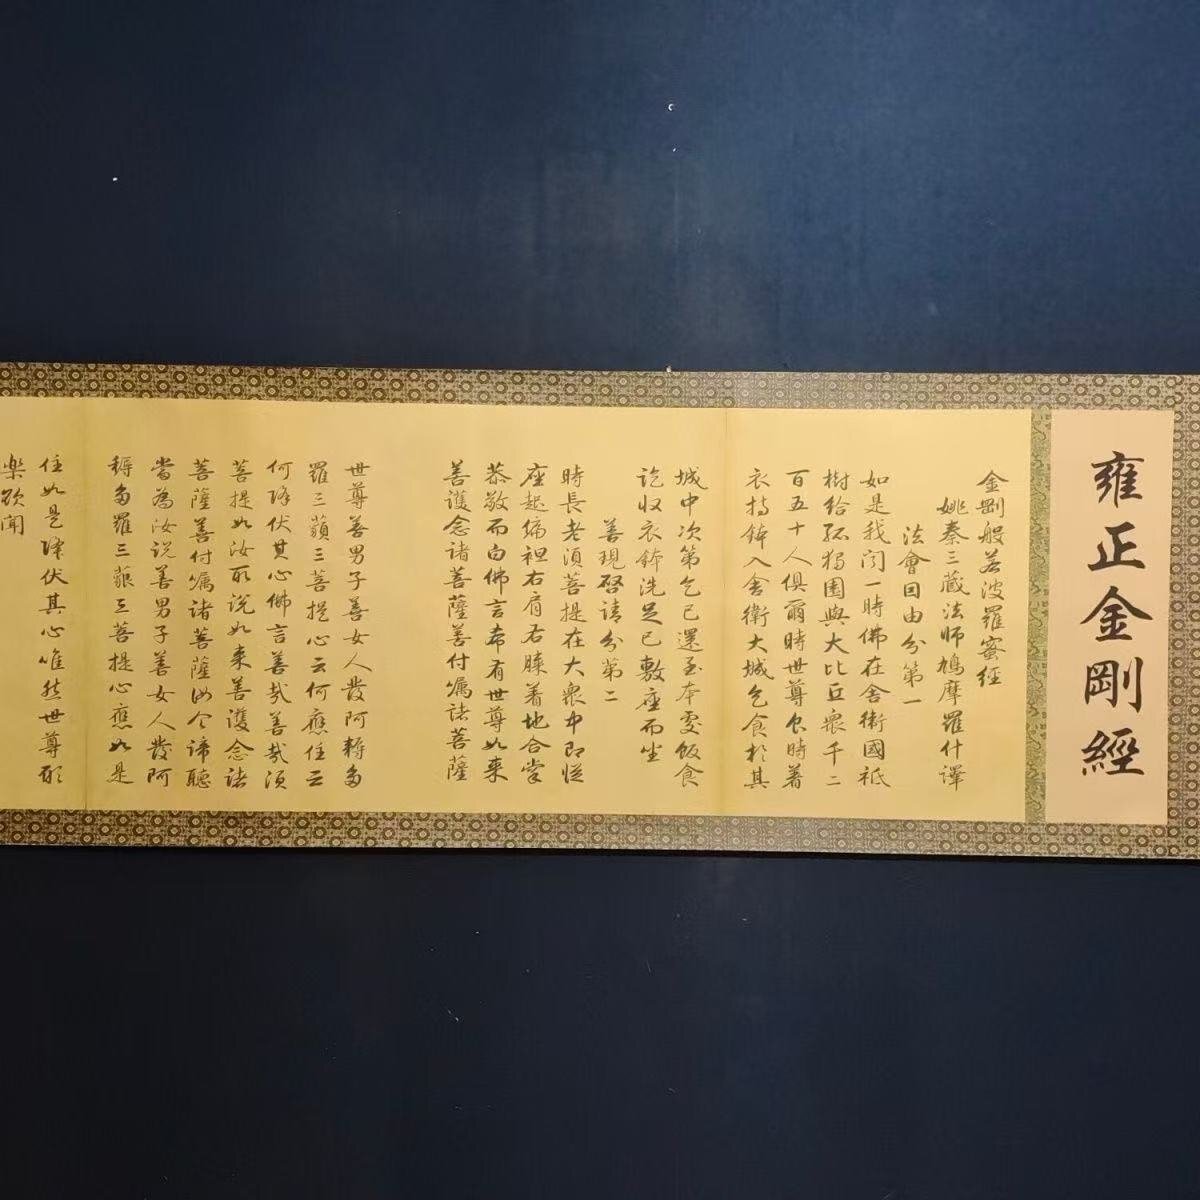 雍正金剛經
金剛般若波羅蜜經
姚秦三藏法師鳩摩羅什譯
法會因由分第一
如是我聞一時佛在舍衛國祇
樹給孤獨園與大比丘眾千二
百五十人俱爾時世尊食時著
衣持鉢入舍衛大城乞食於其
城中次第乞已還至本處飯食
訖收衣鉢洗足已敷座而坐
善現啓請分第二
時長老須菩提在大眾中即從
座起偏袒右肩右膝着地合掌
恭敬而白佛言希有世尊如來
善護念諸菩薩善付囑諸菩薩
世尊善男子善女人發阿耨多
羅三藐三菩提心云何應住云
何降伏其心佛言善哉善哉須
菩提如汝所說如來善護念諸
菩薩善付囑諸菩薩汝今諦聽
當為汝說善男子善女人發阿
耨多羅三藐三菩提心應如是
住如是降伏其心唯然世尊願
樂欲聞